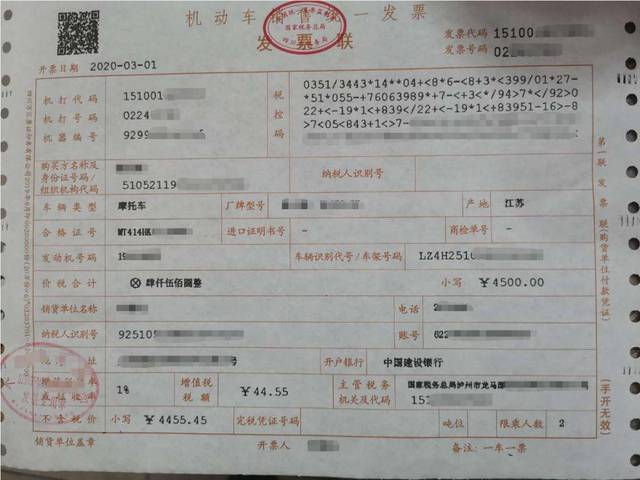 机动车销售统一发票
发票联
国家税务总局
发票代码 15100
发票号码 02
开票日期 2020-03-01
机打代码 151001
机打号码 0224
机器编号 9299
税控码
0351/3443*14**04+<8*6-<8+3*<399/01*27-
*51*055-+76063989*+7-<+3<*/94>7*</92>0
22+<-19*1<+839</22+<-19*1<+83951-16>-8
>7<05<843+1<>7-
购买方名称及身份证号码/组织机构代码 51052119
纳税人识别号
车辆类型 摩托车 厂牌型号 产地 江苏
合格证号 MT414HK 进口证明书号 - 商检单号 -
发动机号码 19 车辆识别代号/车架号码 LZ4H2510
价税合计 ⊗肆仟伍佰圆整 小写 ￥4500.00
销货单位名称 电话 2
纳税人识别号 92510 账号 622
址 号 开户银行 中国建设银行
增值税税率或征收率 1% 增值税税额 ￥44.55 主管税务机关及代码 国家税务总局泸州市龙马
15
不含税价 小写 ￥4455.45 完税凭证号码 吨位 限乘人数 2
销货单位盖章 开票人 备注：一车一票
第一联 发票联(购货单位付款凭证)
(手开无效)